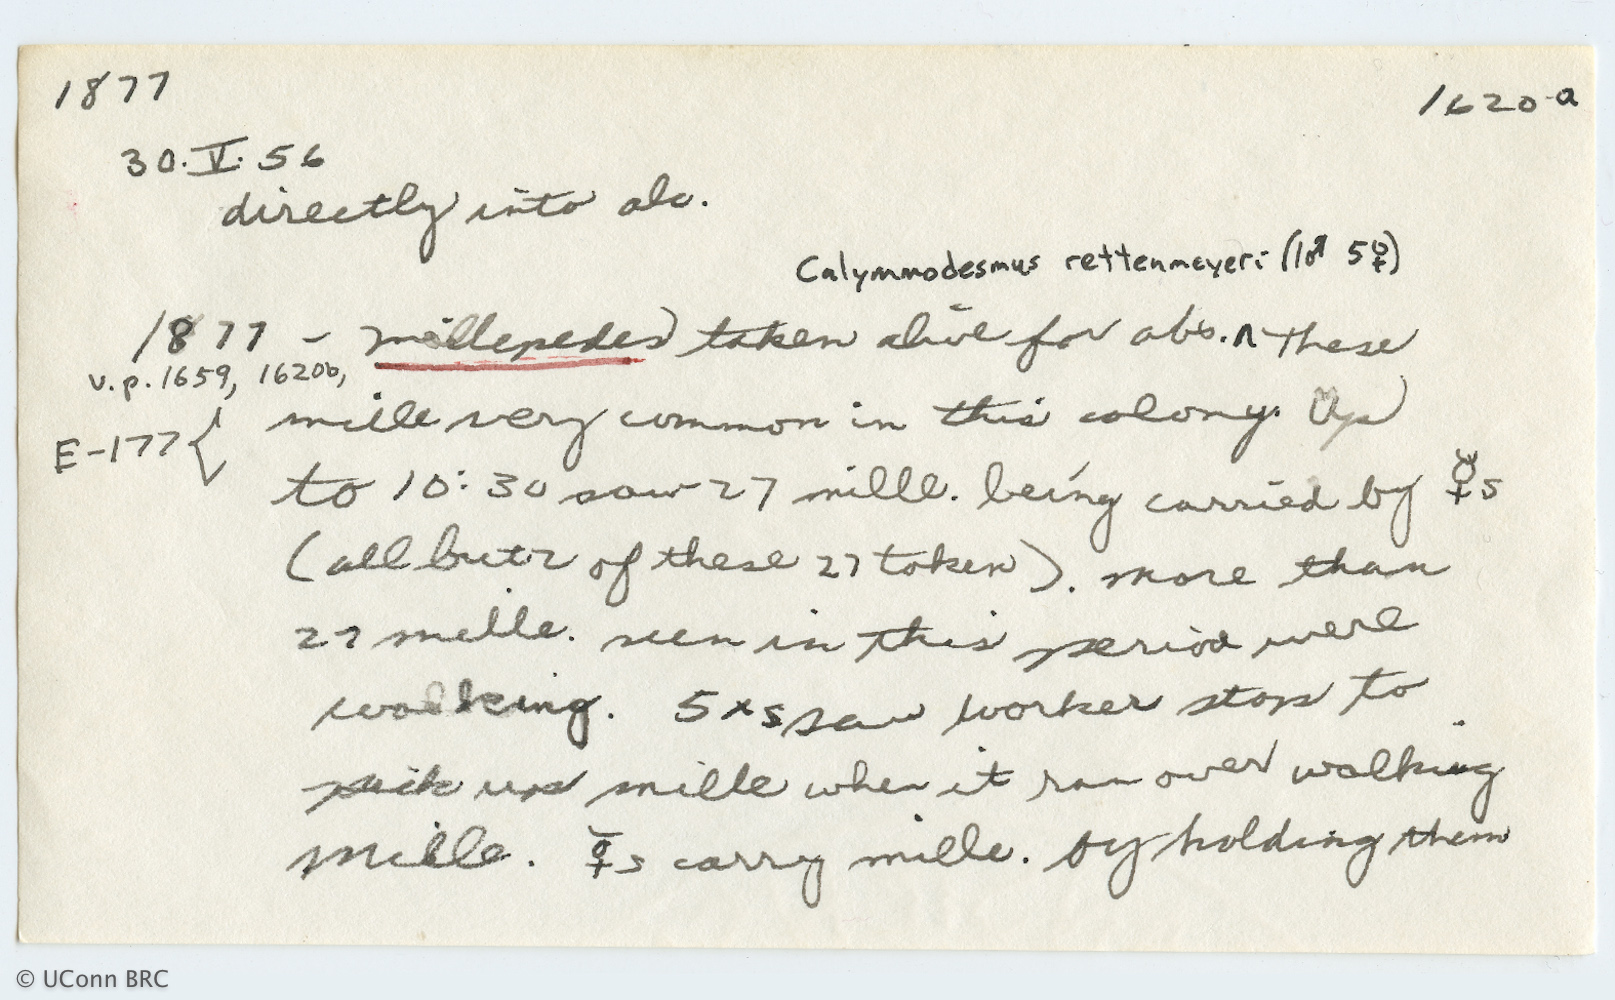 1877
1620-a
30.V.56
directly into alc.
Calymmodesmus rettenmeyeri (1♂ 5♀)
1877 - millepedes taken alive for obs. ∧ These
v.p. 1659, 1620b,
mille very common in this colony. Up
E-177{
to 10:30 saw 27 mille. being carried by ☿s
(all but 2 of these 27 taken). more than
27 mille. seen in this period were
walking. 5xs saw worker stop to
pick up mille when it ran over walking
mille. ☿s carry mille. by holding them
© UConn BRC